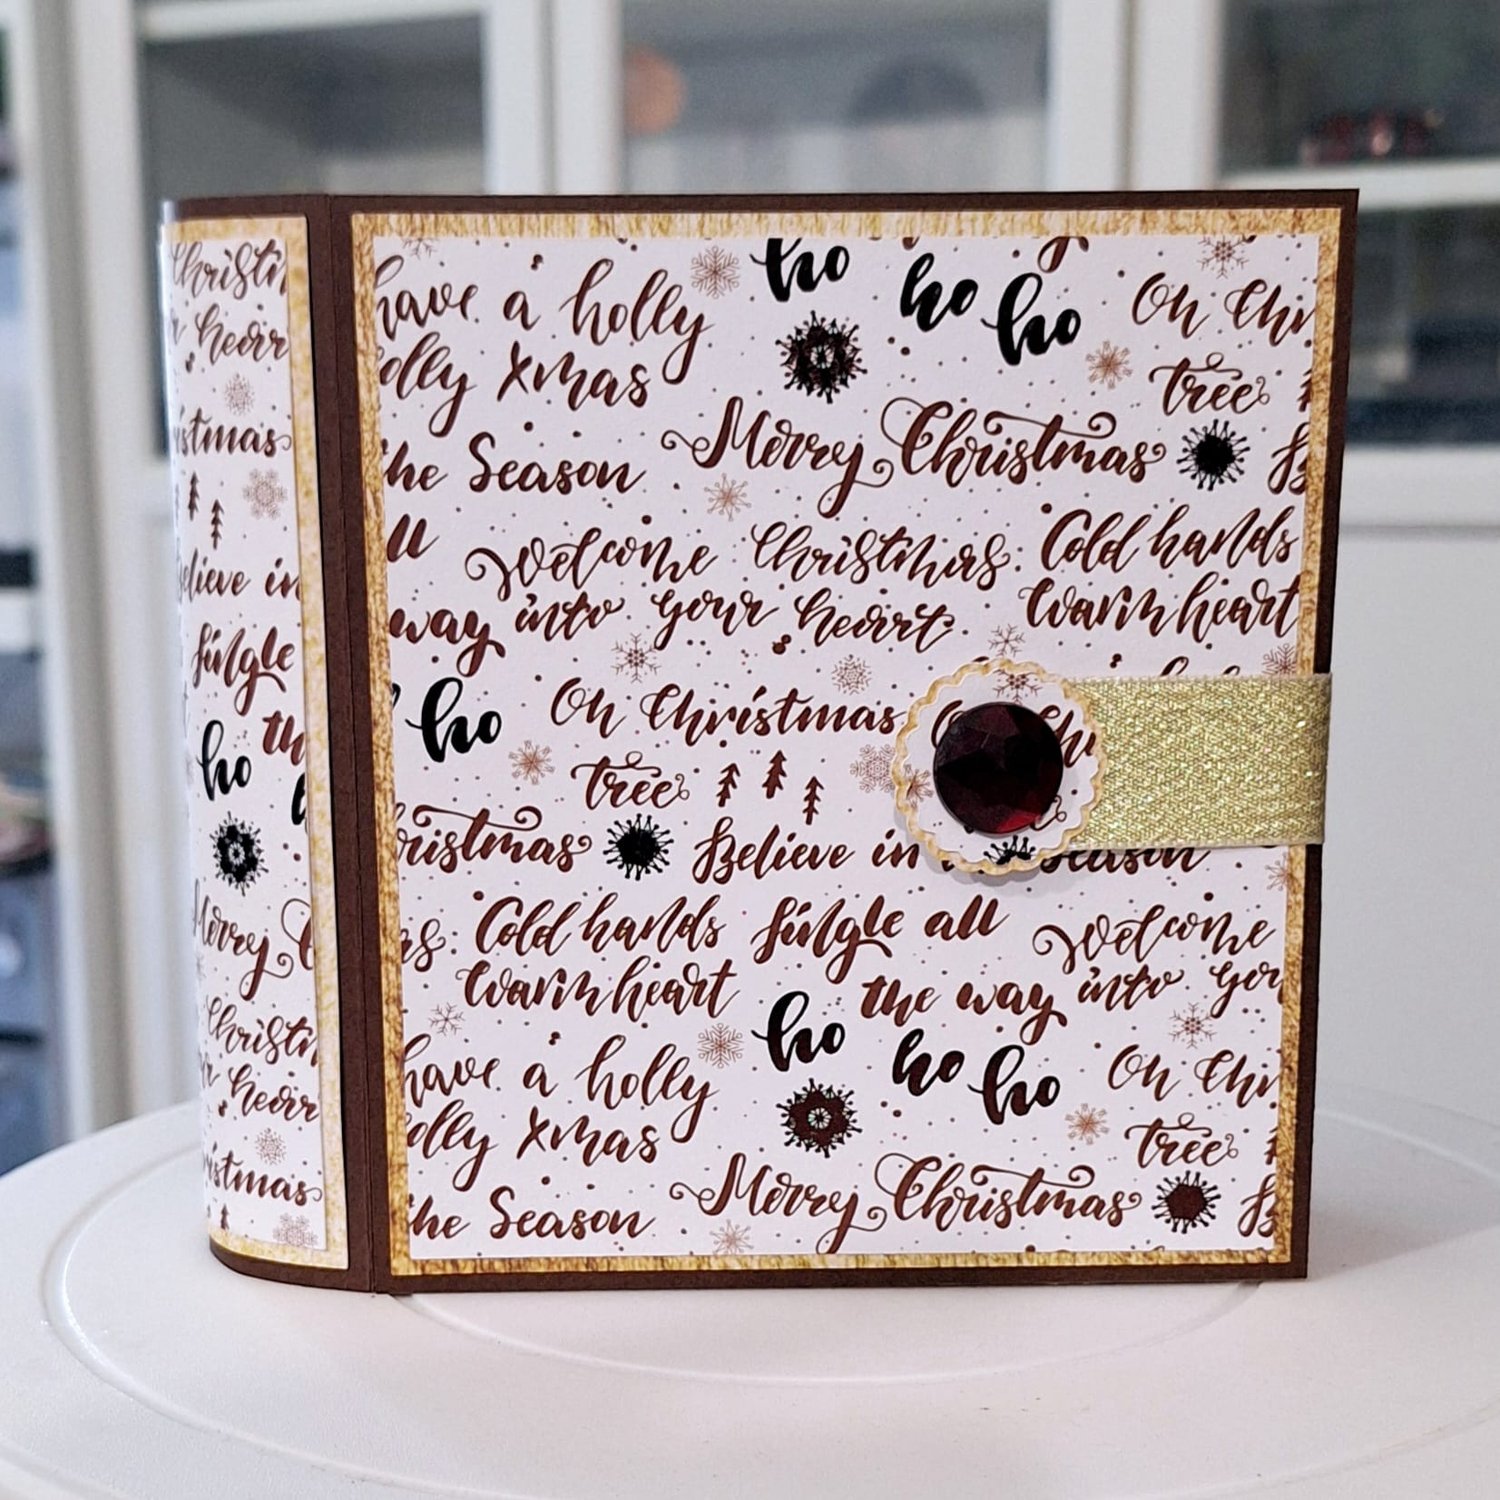 Christm
heart
istmas
elieve in
Jingle
th
ho
Merry C
Christm
heart
ristmas
have a holly
olly xmas
ho ho ho
Oh Chri
tree
the Season
Merry Christmas
ll
way
Welcome Christmas
into your heart
Cold hands
Warm heart
ho
Oh Christmas
tree
hristmas
Believe in
Season
Cold hands
Warm heart
Jingle all
the way
Welcome
into you
have a holly
olly xmas
ho ho ho
Oh Chri
tree
the Season
Merry Christmas